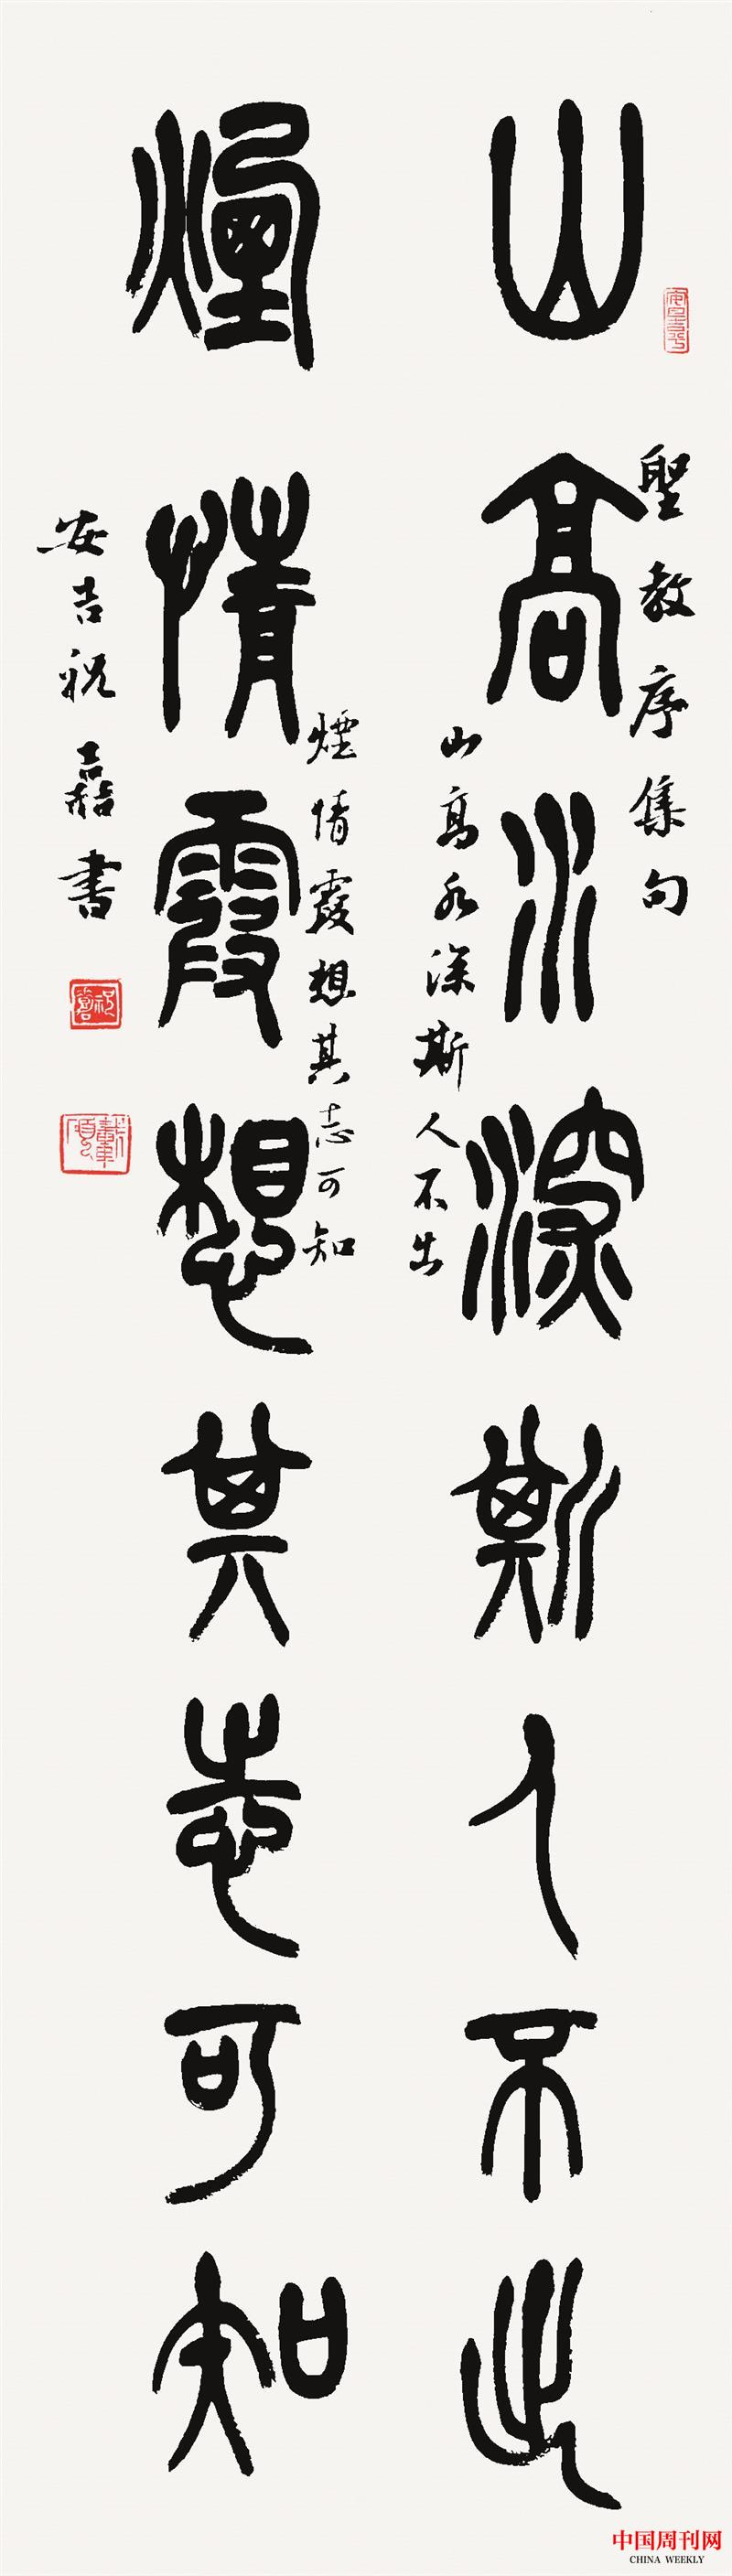 聖教序集句
山高水深斯人不出
山高水深斯人不出
煙情霞想其志可知
煙情霞想其志可知
安吉祝嚞書
中国周刊网
CHINA WEEKLY